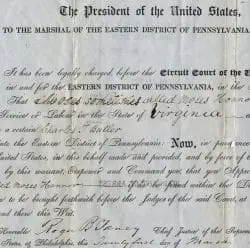 The President of the United States,
TO THE MARSHAL OF THE EASTERN DISTRICT OF PENNSYLVANIA
It has been legally charged, before the Circuit Court of the U
in and for the EASTERN DISTRICT OF PENNSYLVANIA, in the
That Moses sometimes called Moses Honner
Service or Labour in the State of Virginia
a certain Charles T Butler
into the Eastern District of Pennsylvania: Now, in pursuance
United States, in this behalf made and provided, and by force of
by this warrant, Empower and Command you, that you Appre
Moses Honner found within the Dis
to be brought forthwith before the Judges of the said Court, at
there this Writ.
Honorable Roger B Taney Chief Justice of the Supreme
States, at Philadelphia, this Twenty first day of March